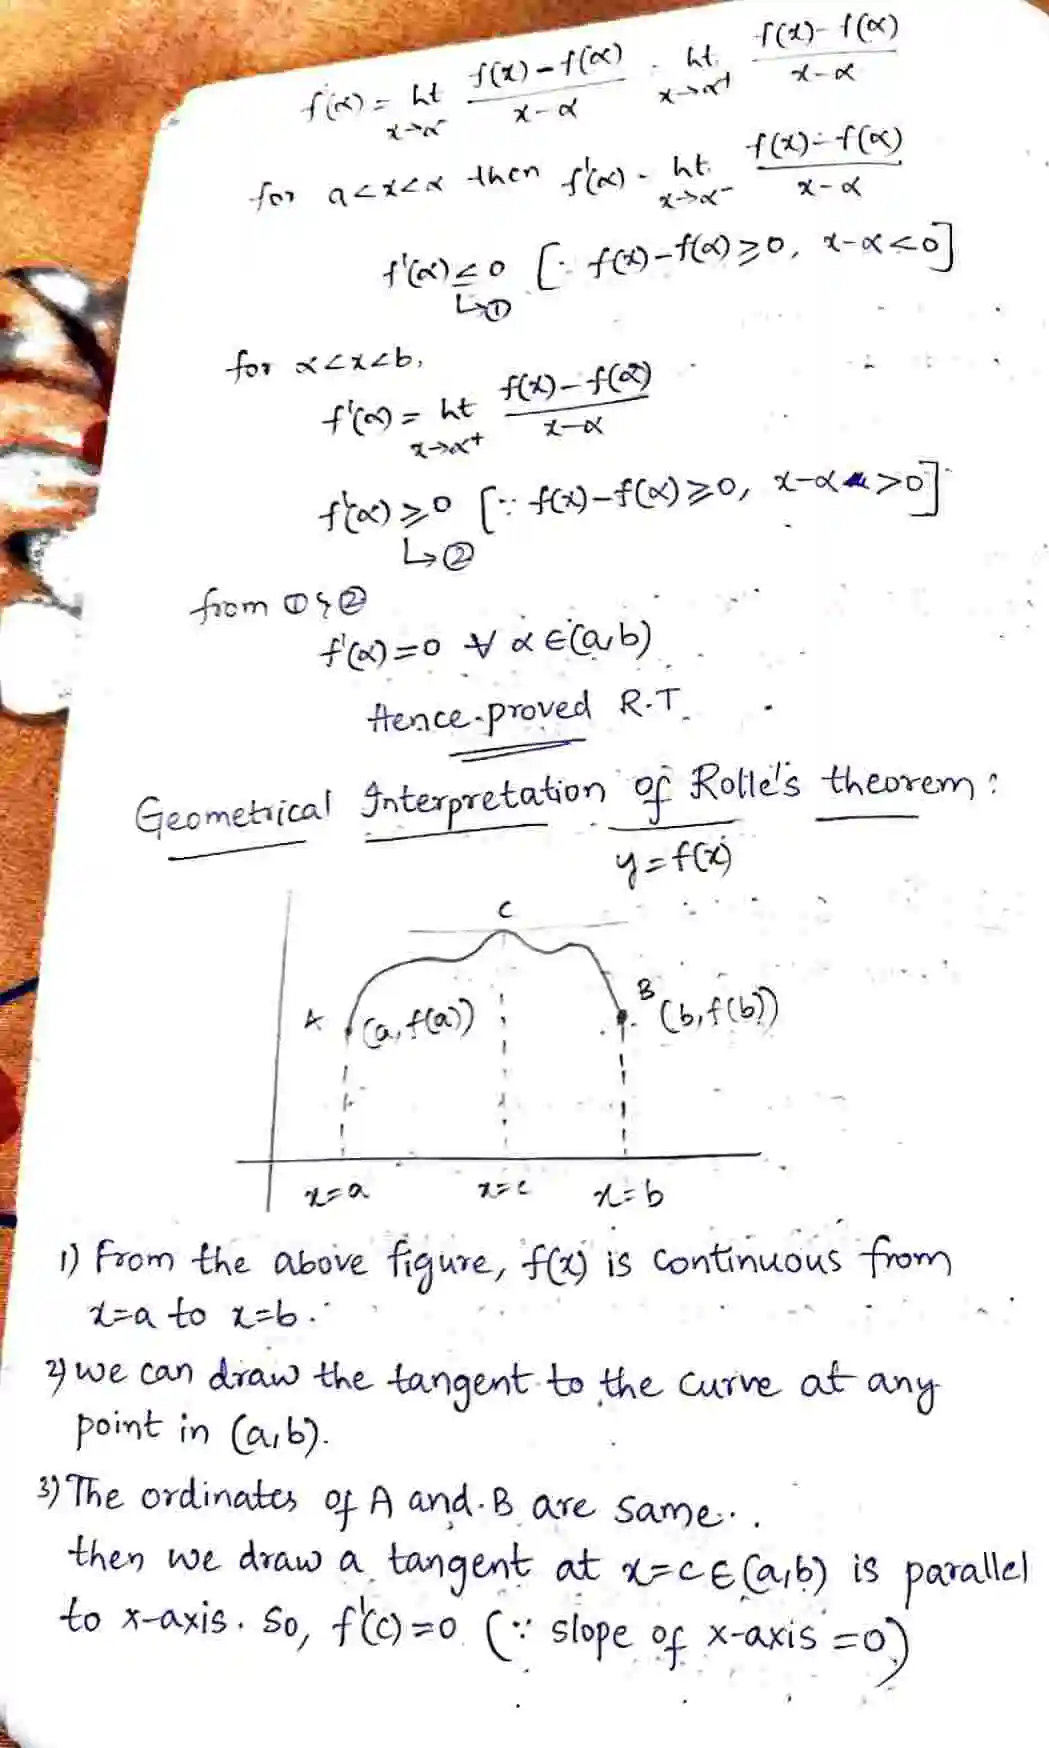 f'(α) = Lt x→α⁻ f(x)-f(α)/x-α = Lt x→α⁺ f(x)-f(α)/x-α
for a<x<α then f'(α) = Lt x→α⁻ f(x)-f(α)/x-α
f'(α) ≤ 0 [∵ f(x)-f(α) ≥ 0, x-α < 0]
↳①
for α<x<b,
f'(α) = Lt x→α⁺ f(x)-f(α)/x-α
f'(α) ≥ 0 [∵ f(x)-f(α) ≥ 0, x-α > 0]
↳②
from ① & ②
f'(α) = 0 ∀ α ∈ (a,b)
Hence proved R.T.
Geometrical Interpretation of Rolle's theorem:
y = f(x)
C
A (a, f(a)) B (b, f(b))
x=a x=c x=b
1) From the above figure, f(x) is continuous from
x=a to x=b.
2) we can draw the tangent to the curve at any
point in (a,b).
3) The ordinates of A and B are same.
then we draw a tangent at x=c∈(a,b) is parallel
to x-axis. So, f'(c)=0 (∵ slope of x-axis =0)